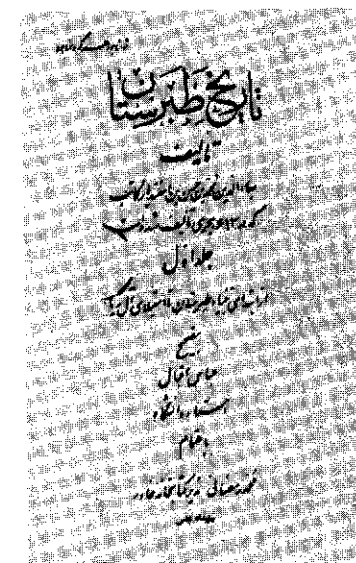 تاریخ طبرستان
تألیف
بهاءالدین محمد بن حسن بن اسفندیار کاتب
که در ۶۱۳ هجری تألیف شده است
جلد اول
از ابتدای بنیاد طبرستان تا استیلای آل زیار
بتصحیح
عباس اقبال
استاد دانشگاه
باهتمام
محمد رمضانی مدیر کتابخانه خاور